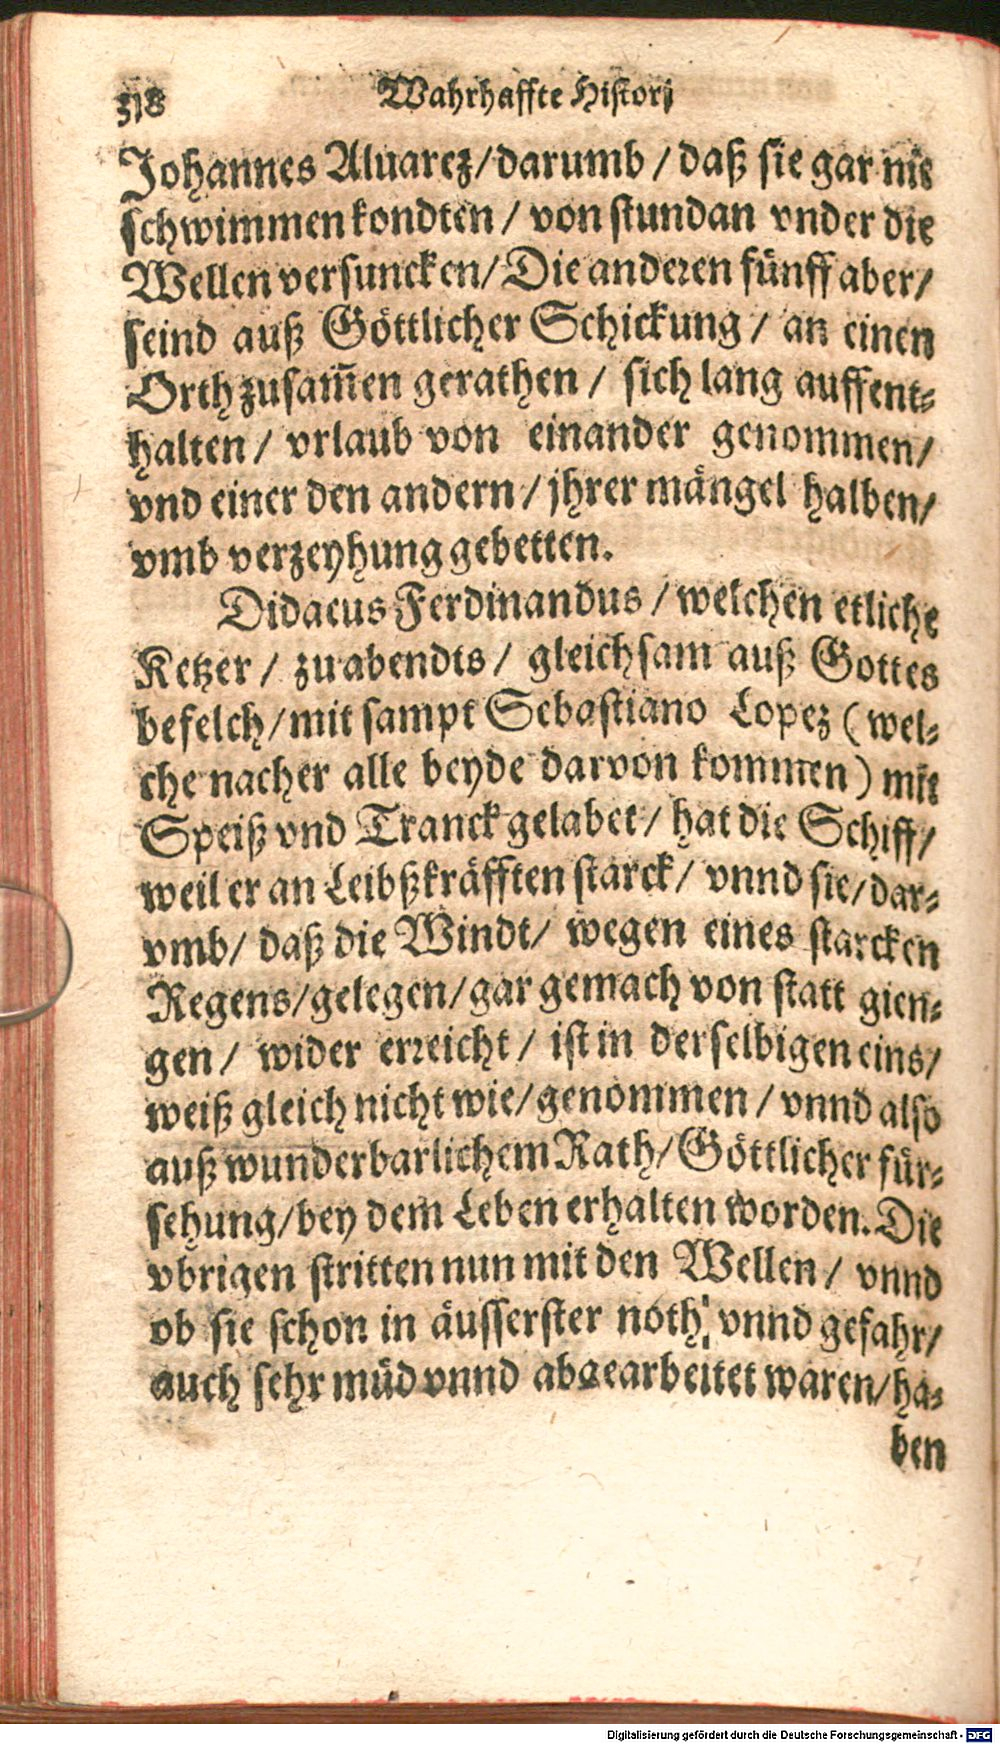 318 Wahrhaffte Histori
Johannes Aluarez/darumb/daß sie gar nit
schwimmen kondten/von stundan vnder die
Wellen versuncken/Die anderen fünff aber/
seind auß Göttlicher Schickung/an einen
Orth zusam̄en gerathen/sich lang auffent⸗
halten/vrlaub von einander genommen/
vnd einer den andern/jhrer mängel halben/
vmb verzeyhung gebetten.
Didacus Ferdinandus/welchen etliche
Ketzer/zu abendts/gleichsam auß Gottes
befelch/mit sampt Sebastiano Lopez (wel⸗
che nacher alle beyde darvon kommen) mit
Speiß vnd Tranck gelabet/hat die Schiff/
weil er an Leibßkräfften starck/vnnd sie/dar⸗
vmb/daß die Windt/wegen eines starcken
Regens/gelegen/gar gemach von statt gien⸗
gen/wider erreicht/ist in derselbigen eins/
weiß gleich nicht wie/genommen/vnnd also
auß wunderbarlichem Rath/Göttlicher für⸗
sehung/bey dem Leben erhalten worden. Die
vbrigen stritten nun mit den Wellen/vnnd
ob sie schon in äusserster noth vnnd gefahr/
auch sehr müd vnnd abgearbeitet waren/ha⸗
ben
Digitalisierung gefördert durch die Deutsche Forschungsgemeinschaft - DFG